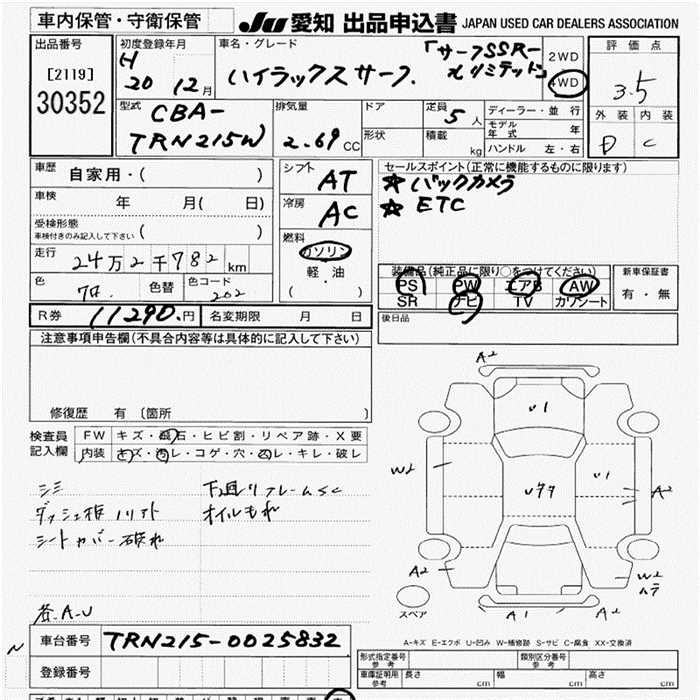 車内保管・守衛保管
JU 愛知 出品申込書 JAPAN USED CAR DEALERS ASSOCIATION
出品番号
[2119]
30352
初度登録年月
H
20 12月
車名・グレード
ハイラックスサーフ.
「サーフSSR-
Xリミテッド」
2WD
4WD
評価点
3.5
外装 内装
D C
型式
CBA-
TRN215W
排気量
2.69 CC
ドア
形状
定員
5人
積載
kg
ディーラー・並行
モデル年式 年
ハンドル 左・右
車歴
自家用・( )
車検
年 月( 日)
受検形態
車検付きのみ記入して下さい ( )
走行
24万2千782 km
色
色替
色コード
202
シフト
AT
冷房
AC
燃料
ガソリン
軽・油
( ・ )
セールスポイント(正常に機能するものに限ります)
☆バックカメラ
☆ETC
装備品(純正品に限り○をつけてください)
PS PW エアB AW
SR ナビ TV カワシート
新車保証書
有・無
後日品
R券 11290.円
名変期限 月 日
注意事項申告欄(不具合内容等は具体的に記入して下さい)
修復歴 有 〔箇所 〕
検査員
記入欄
FW キズ・飛石・ヒビ割・リペア跡・X要
内装 キズ・汚レ・コゲ・穴・凹レ・キレ・破レ
シミ
下廻リフレームSC
オイルもれ
シートカバー破れ
各A.U
A2
U1
W2
Uテテ
U1
A2
A2
W2
ハテ
スペア
A1
A2
A-キズ E-エクボ U-凹み W-補修跡 S-サビ C-腐食 XX-交換済
N
車台番号
TRN215-0025832
登録番号
形式指定番号
参考
類別区分番号
参考
車庫証明用
参考
長さ cm
幅 cm
高さ cm